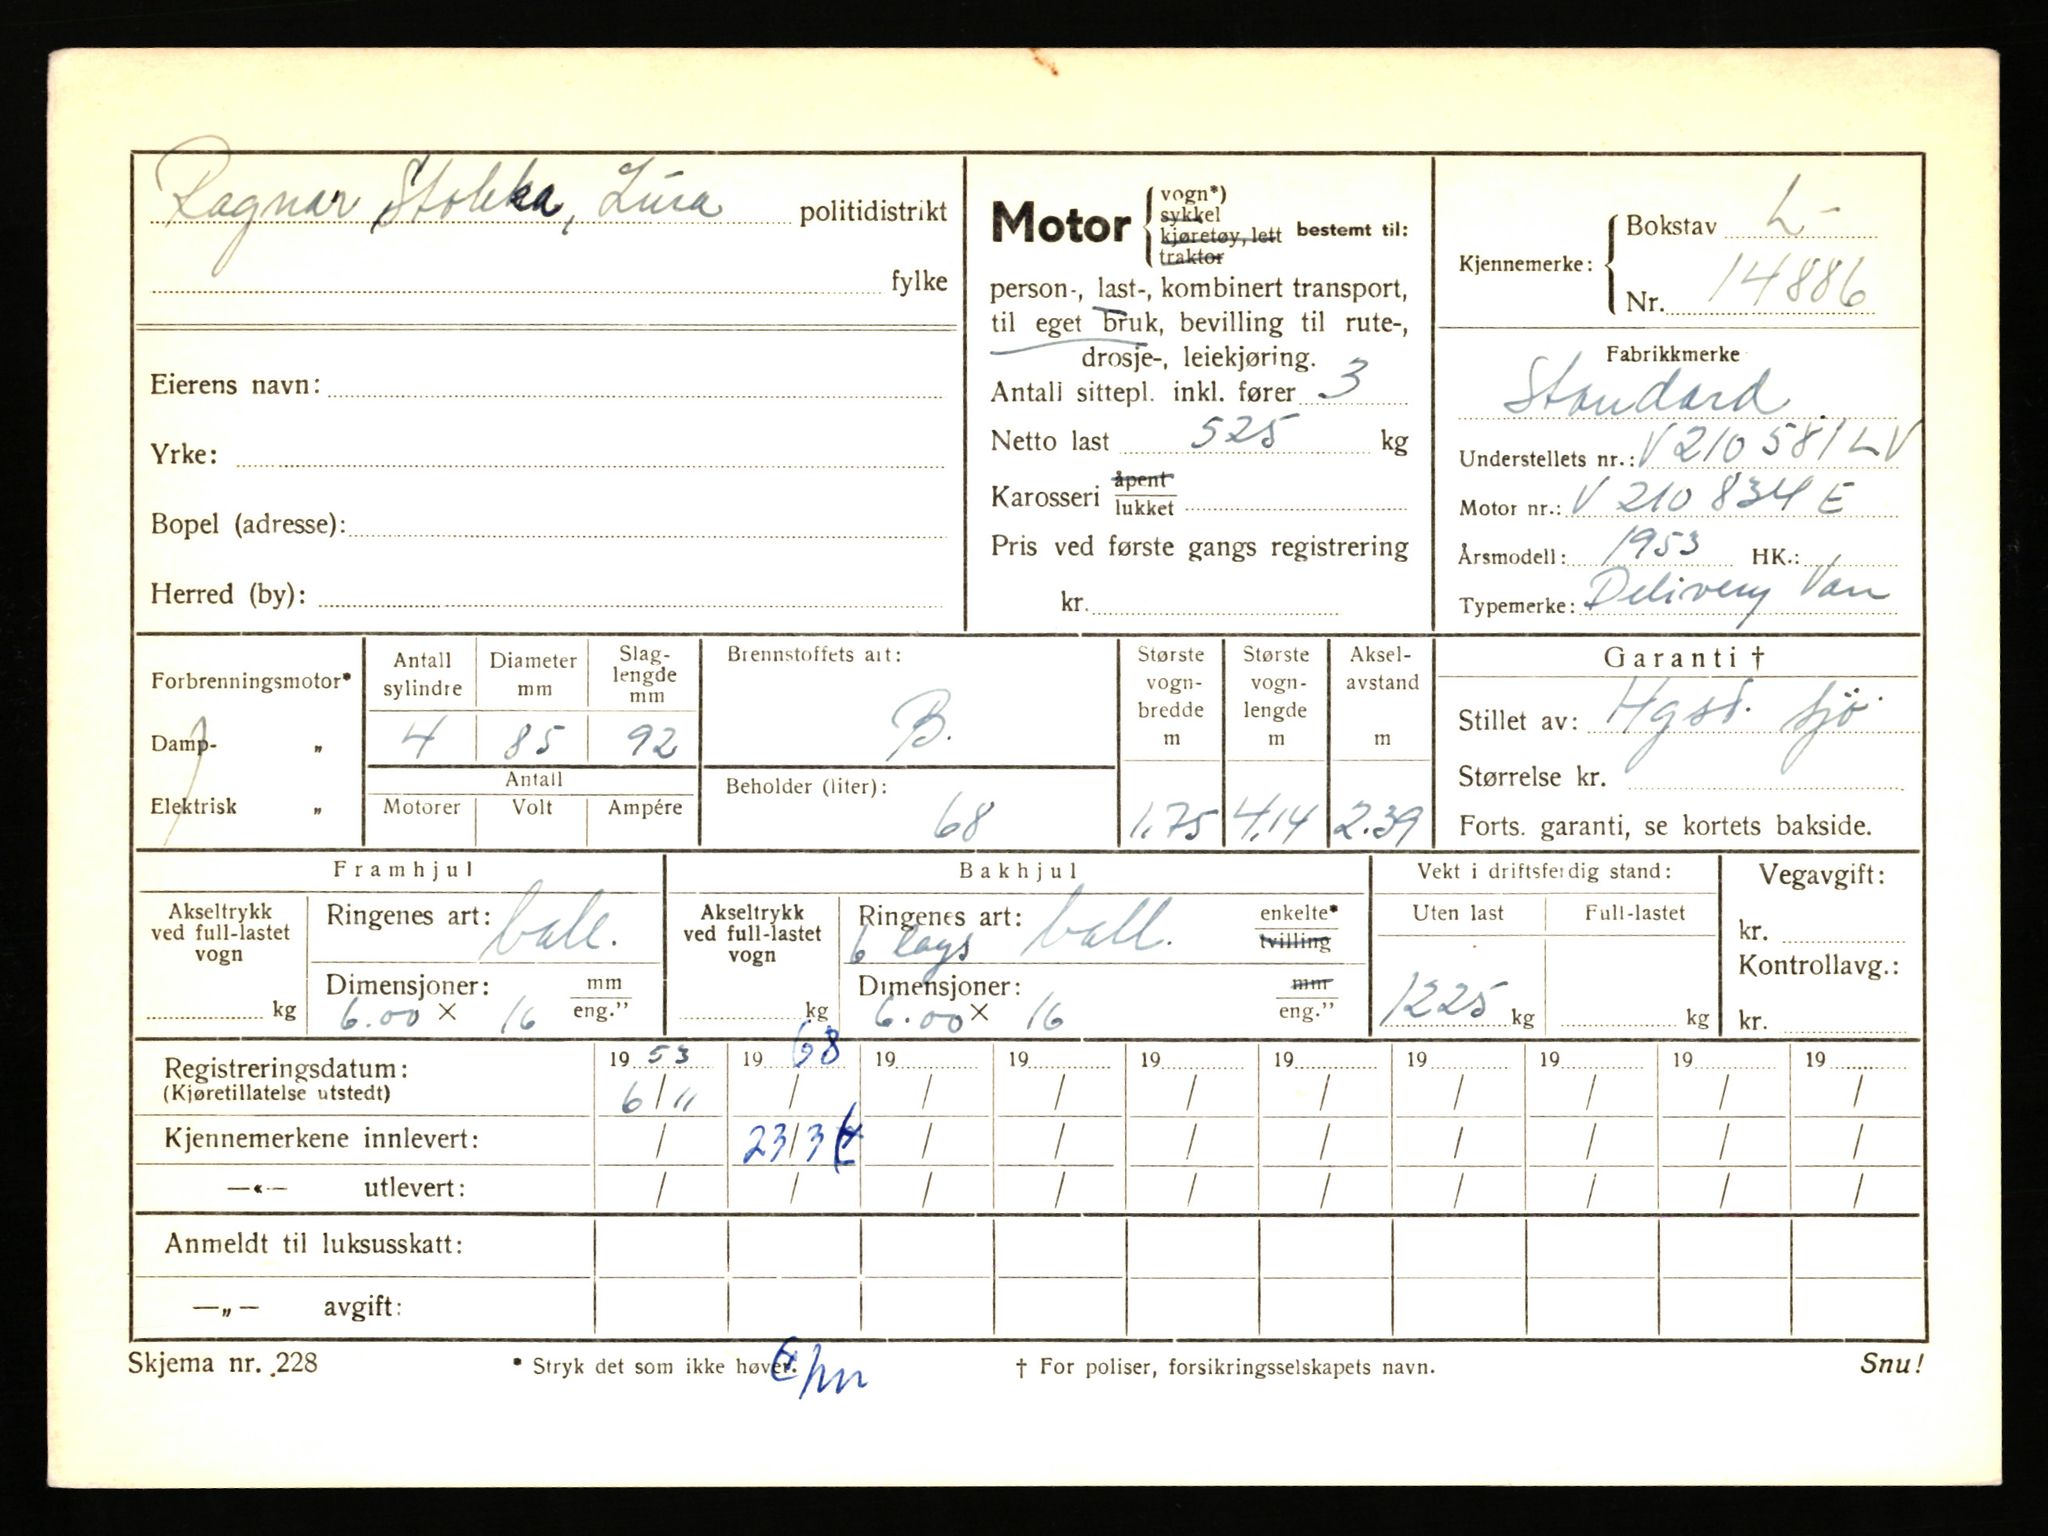 Ragnar Stokka, Lura politidistrikt
fylke
Eierens navn:
Yrke:
Bopel (adresse):
Herred (by):
Motor vogn*) sykkel kjøretøy, lett traktor bestemt til:
person-, last-, kombinert transport,
til eget bruk, bevilling til rute-,
drosje-, leiekjøring.
Antall sittepl. inkl. fører 3
Netto last 525 kg
Karosseri åpent lukket
Pris ved første gangs registrering
kr.
Kjennemerke: Bokstav L-
Nr. 14886
Fabrikkmerke
Standard
Understellets nr.: V210581LV
Motor nr.: V 210834 E
Årsmodell: 1953 HK.:
Typemerke: Delivery Van
Forbrenningsmotor*
Damp- „
Elektrisk „
Antall sylindre Diameter mm Slag-lengde mm
4 85 92
Antall
Motorer Volt Ampére
Brennstoffets art:
B.
Beholder (liter):
68
Største vogn-bredde m Største vogn-lengde m Aksel-avstand m
1.75 4.14 2.39
Garanti †
Stillet av: Hgsd. sjø.
Størrelse kr.
Forts. garanti, se kortets bakside.
Framhjul
Akseltrykk ved full-lastet vogn
kg
Ringenes art: ball.
Dimensjoner: mm
6.00 × 16 eng."
Bakhjul
Akseltrykk ved full-lastet vogn
kg
Ringenes art: ball. enkelte* tvilling
6 lags
Dimensjoner: mm
6.00 × 16 eng."
Vekt i driftsferdig stand:
Uten last Full-lastet
1225 kg kg
Vegavgift:
kr.
Kontrollavg.:
kr.
Registreringsdatum: 19 53 19 68 19 19 19 19 19 19 19 19
(Kjøretillatelse utstedt) 6/11 / / / / / / / / /
Kjennemerkene innlevert: / 23/3 / / / / / / / /
—«— utlevert: / / / / / / / / / /
Anmeldt til luksusskatt:
—„— avgift:
Skjema nr. 228 * Stryk det som ikke høver. † For poliser, forsikringsselskapets navn. Snu!